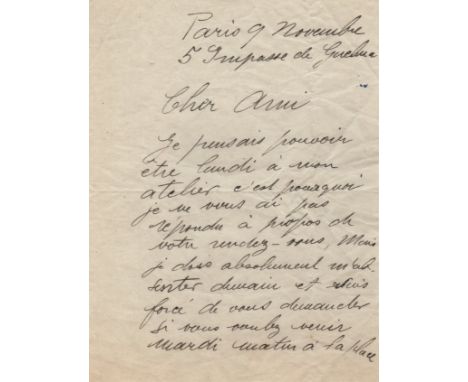 Paris 9 Novembre
5 Impasse de Guelma
Cher Ami
Je pensais pouvoir
être lundi à mon
atelier c'est pourquoi
je ne vous ai pas
répondu à propos de
votre rendez-vous, Mais
je dois absolument m'ab
senter demain et suis
forcé de vous demander
si vous voulez venir
mardi matin à la place